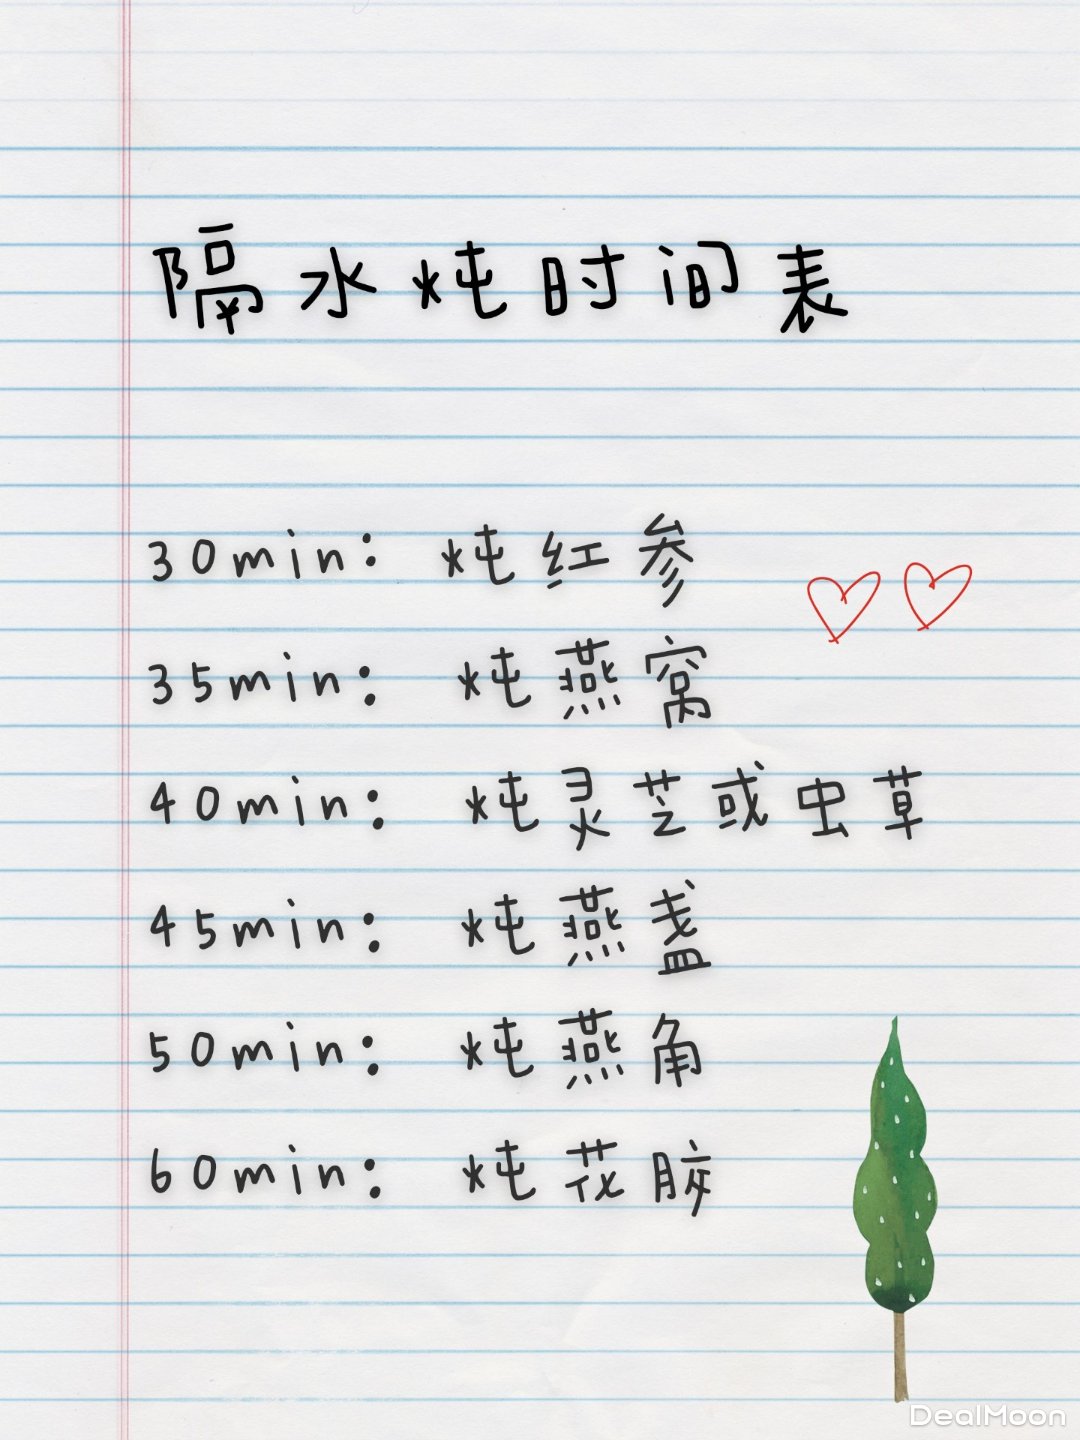 隔水炖时间表
30min: 炖红参
35min: 炖燕窝
40min: 炖灵芝或虫草
45min: 炖燕盏
50min: 炖燕角
60min: 炖花胶
DealMoon